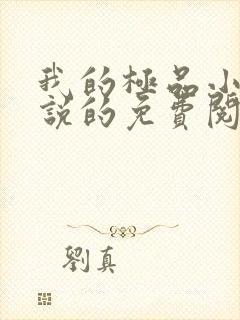 我的極品小
說的免費閱
劉真